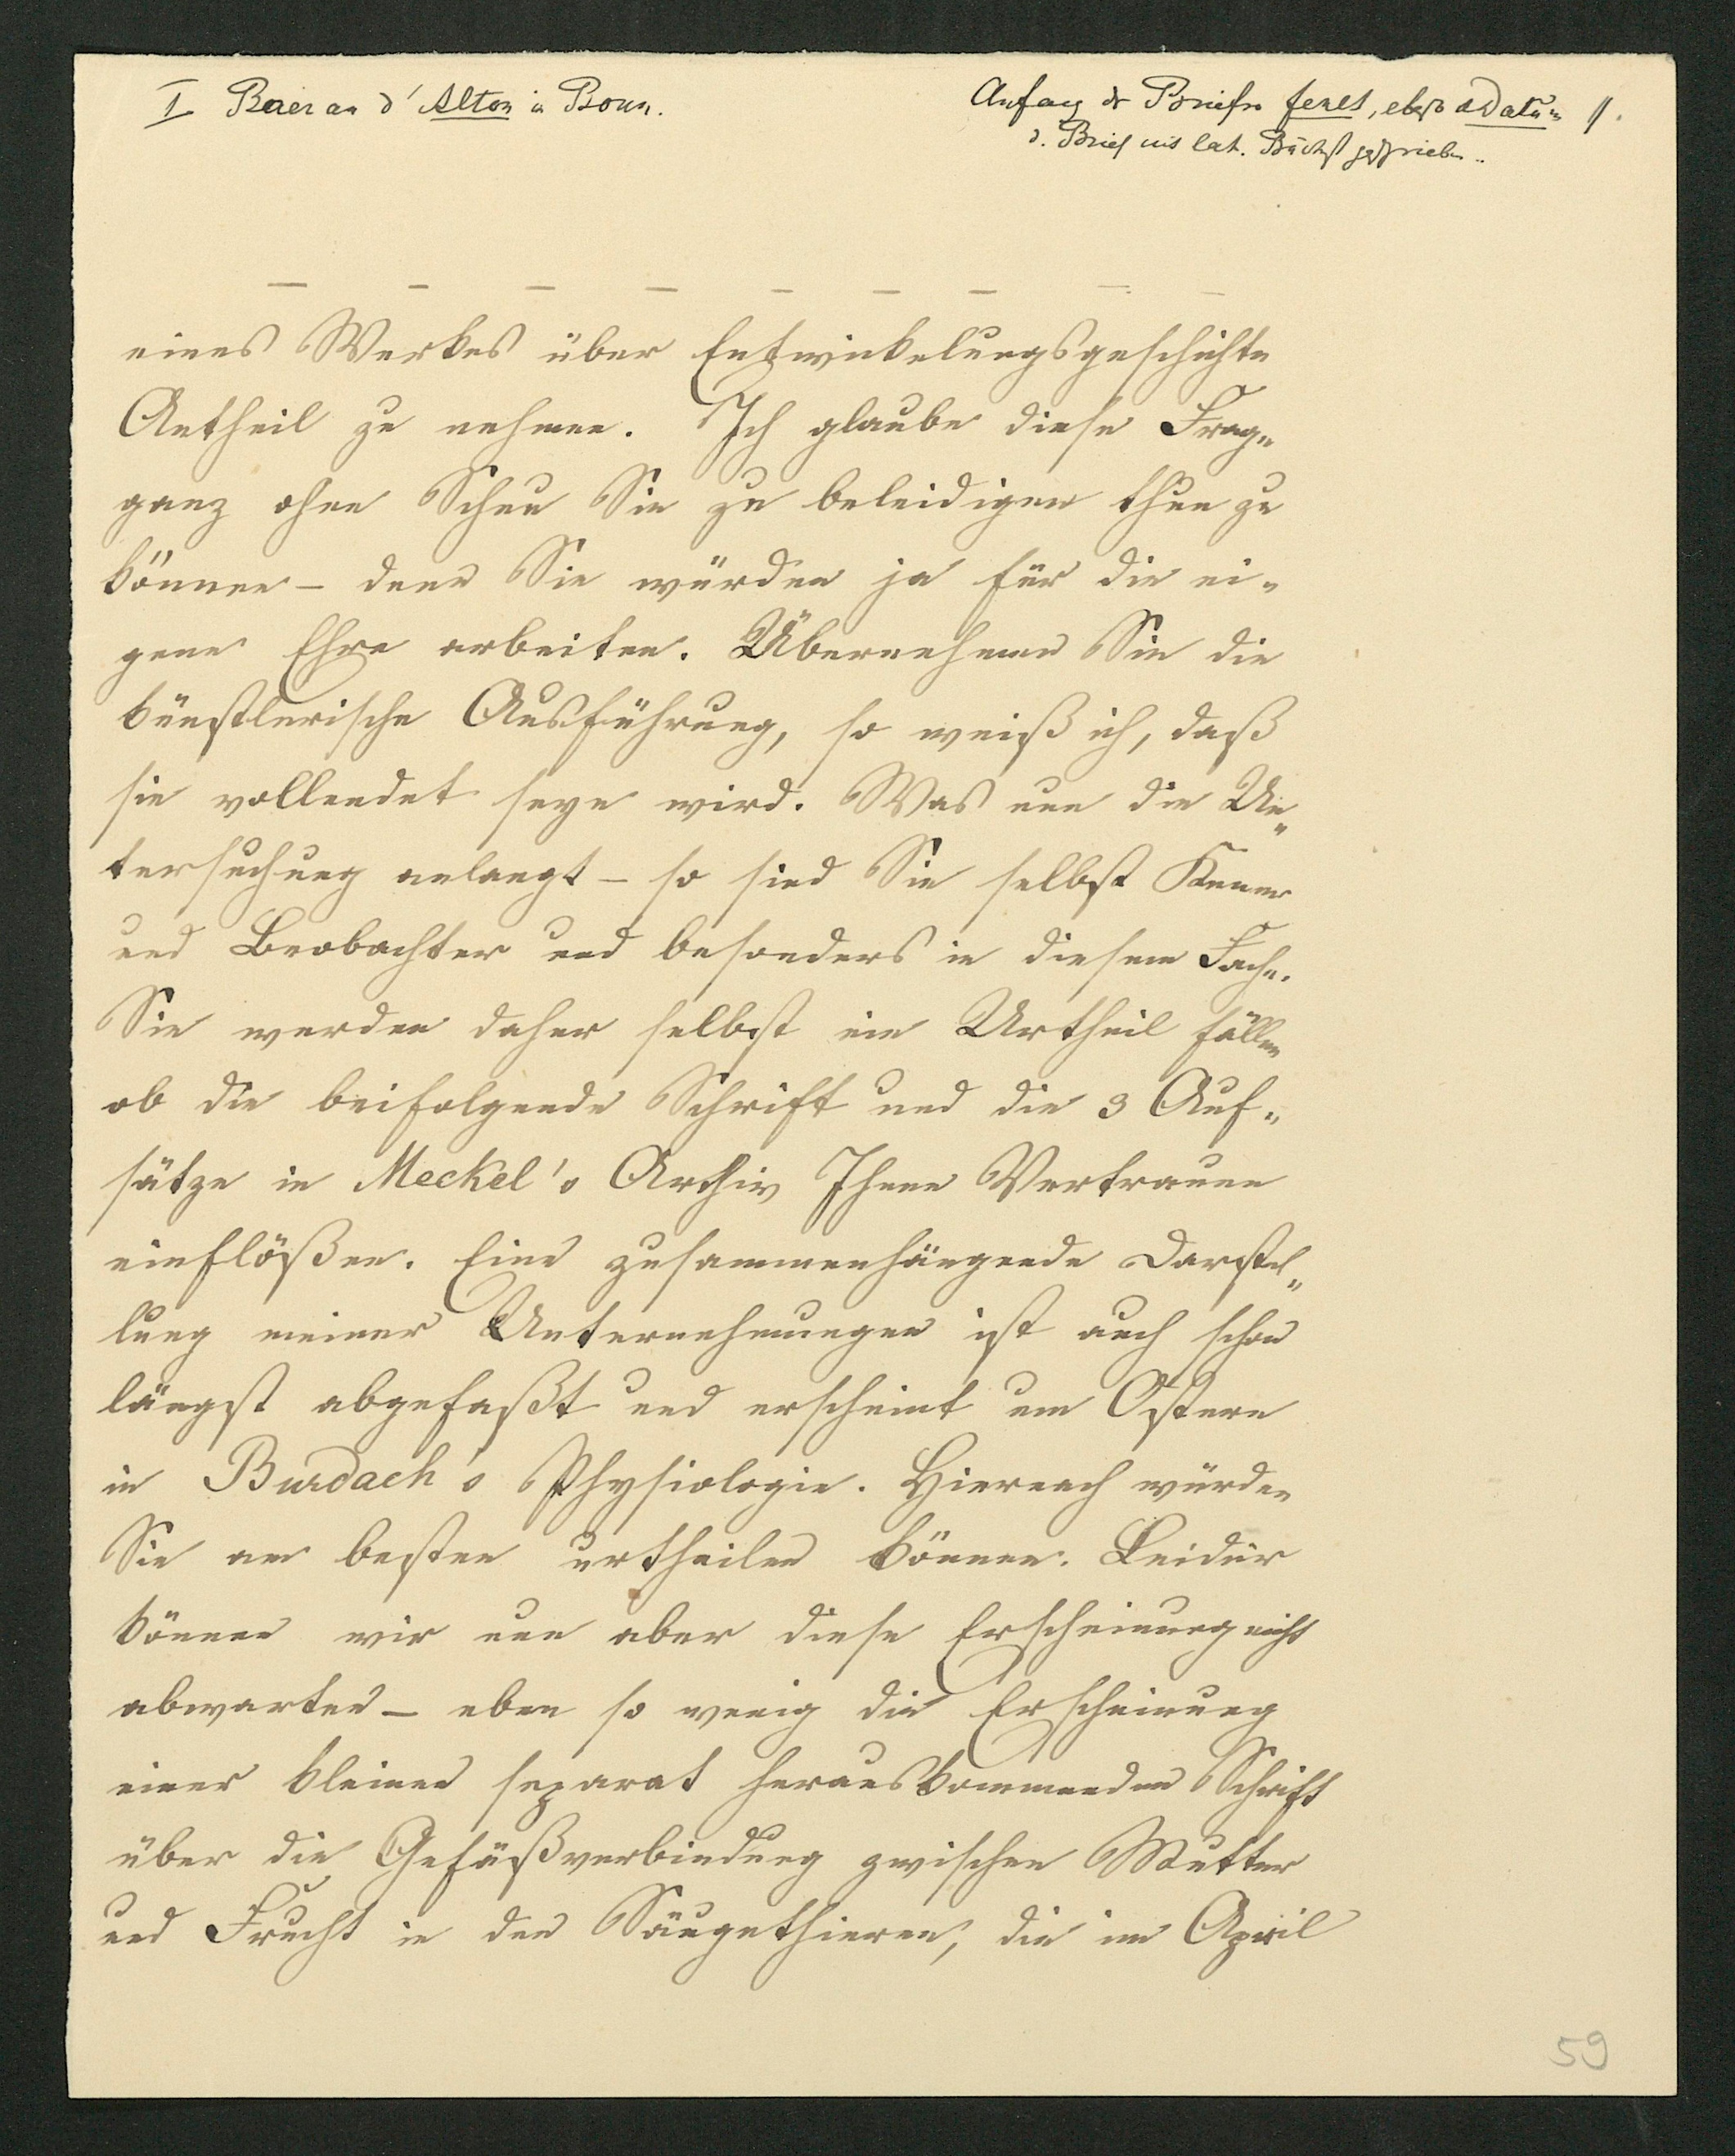 I Baer an d'Alton in Bonn.
Anfang des Briefes fehlt, ebenso d Datum 1.
d. Brief mit lat. Buchst geschrieben.
— — — — — — — — —
eines Werkes über Entwickelungsgeschichte
Antheil zu nehmen. Ich glaube diese Frage
ganz ohne Scheu Sie zu beleidigen thun zu
können – denn Sie würden ja für die ei-
gene Ehre arbeiten. Übernehmen Sie die
künstlerische Ausführung, so weiß ich, daß
sie vollendet seyn wird. Was nun die Un-
tersuchung anlangt – so sind Sie selbst Kenner
und Beobachter und besonders in diesem Fache.
Sie werden daher selbst ein Urtheil fällen
ob die beifolgende Schrift und die 3 Auf-
sätze in Meckel's Archiv Ihnen Vertrauen
einflößen. Eine zusammenhängende Darstel-
lung meiner Unternehmungen ist auch schon
längst abgefaßt und erscheint um Ostern
in Burdach's Physiologie. Hiernach würden
Sie am besten urtheilen können. Leider
können wir nun aber diese Erscheinung nicht
abwarten – eben so wenig die Erscheinung
einer kleinen separat herauskommenden Schrift
über die Gefäßverbindung zwischen Mutter
und Frucht in den Säugethieren, die im April
59